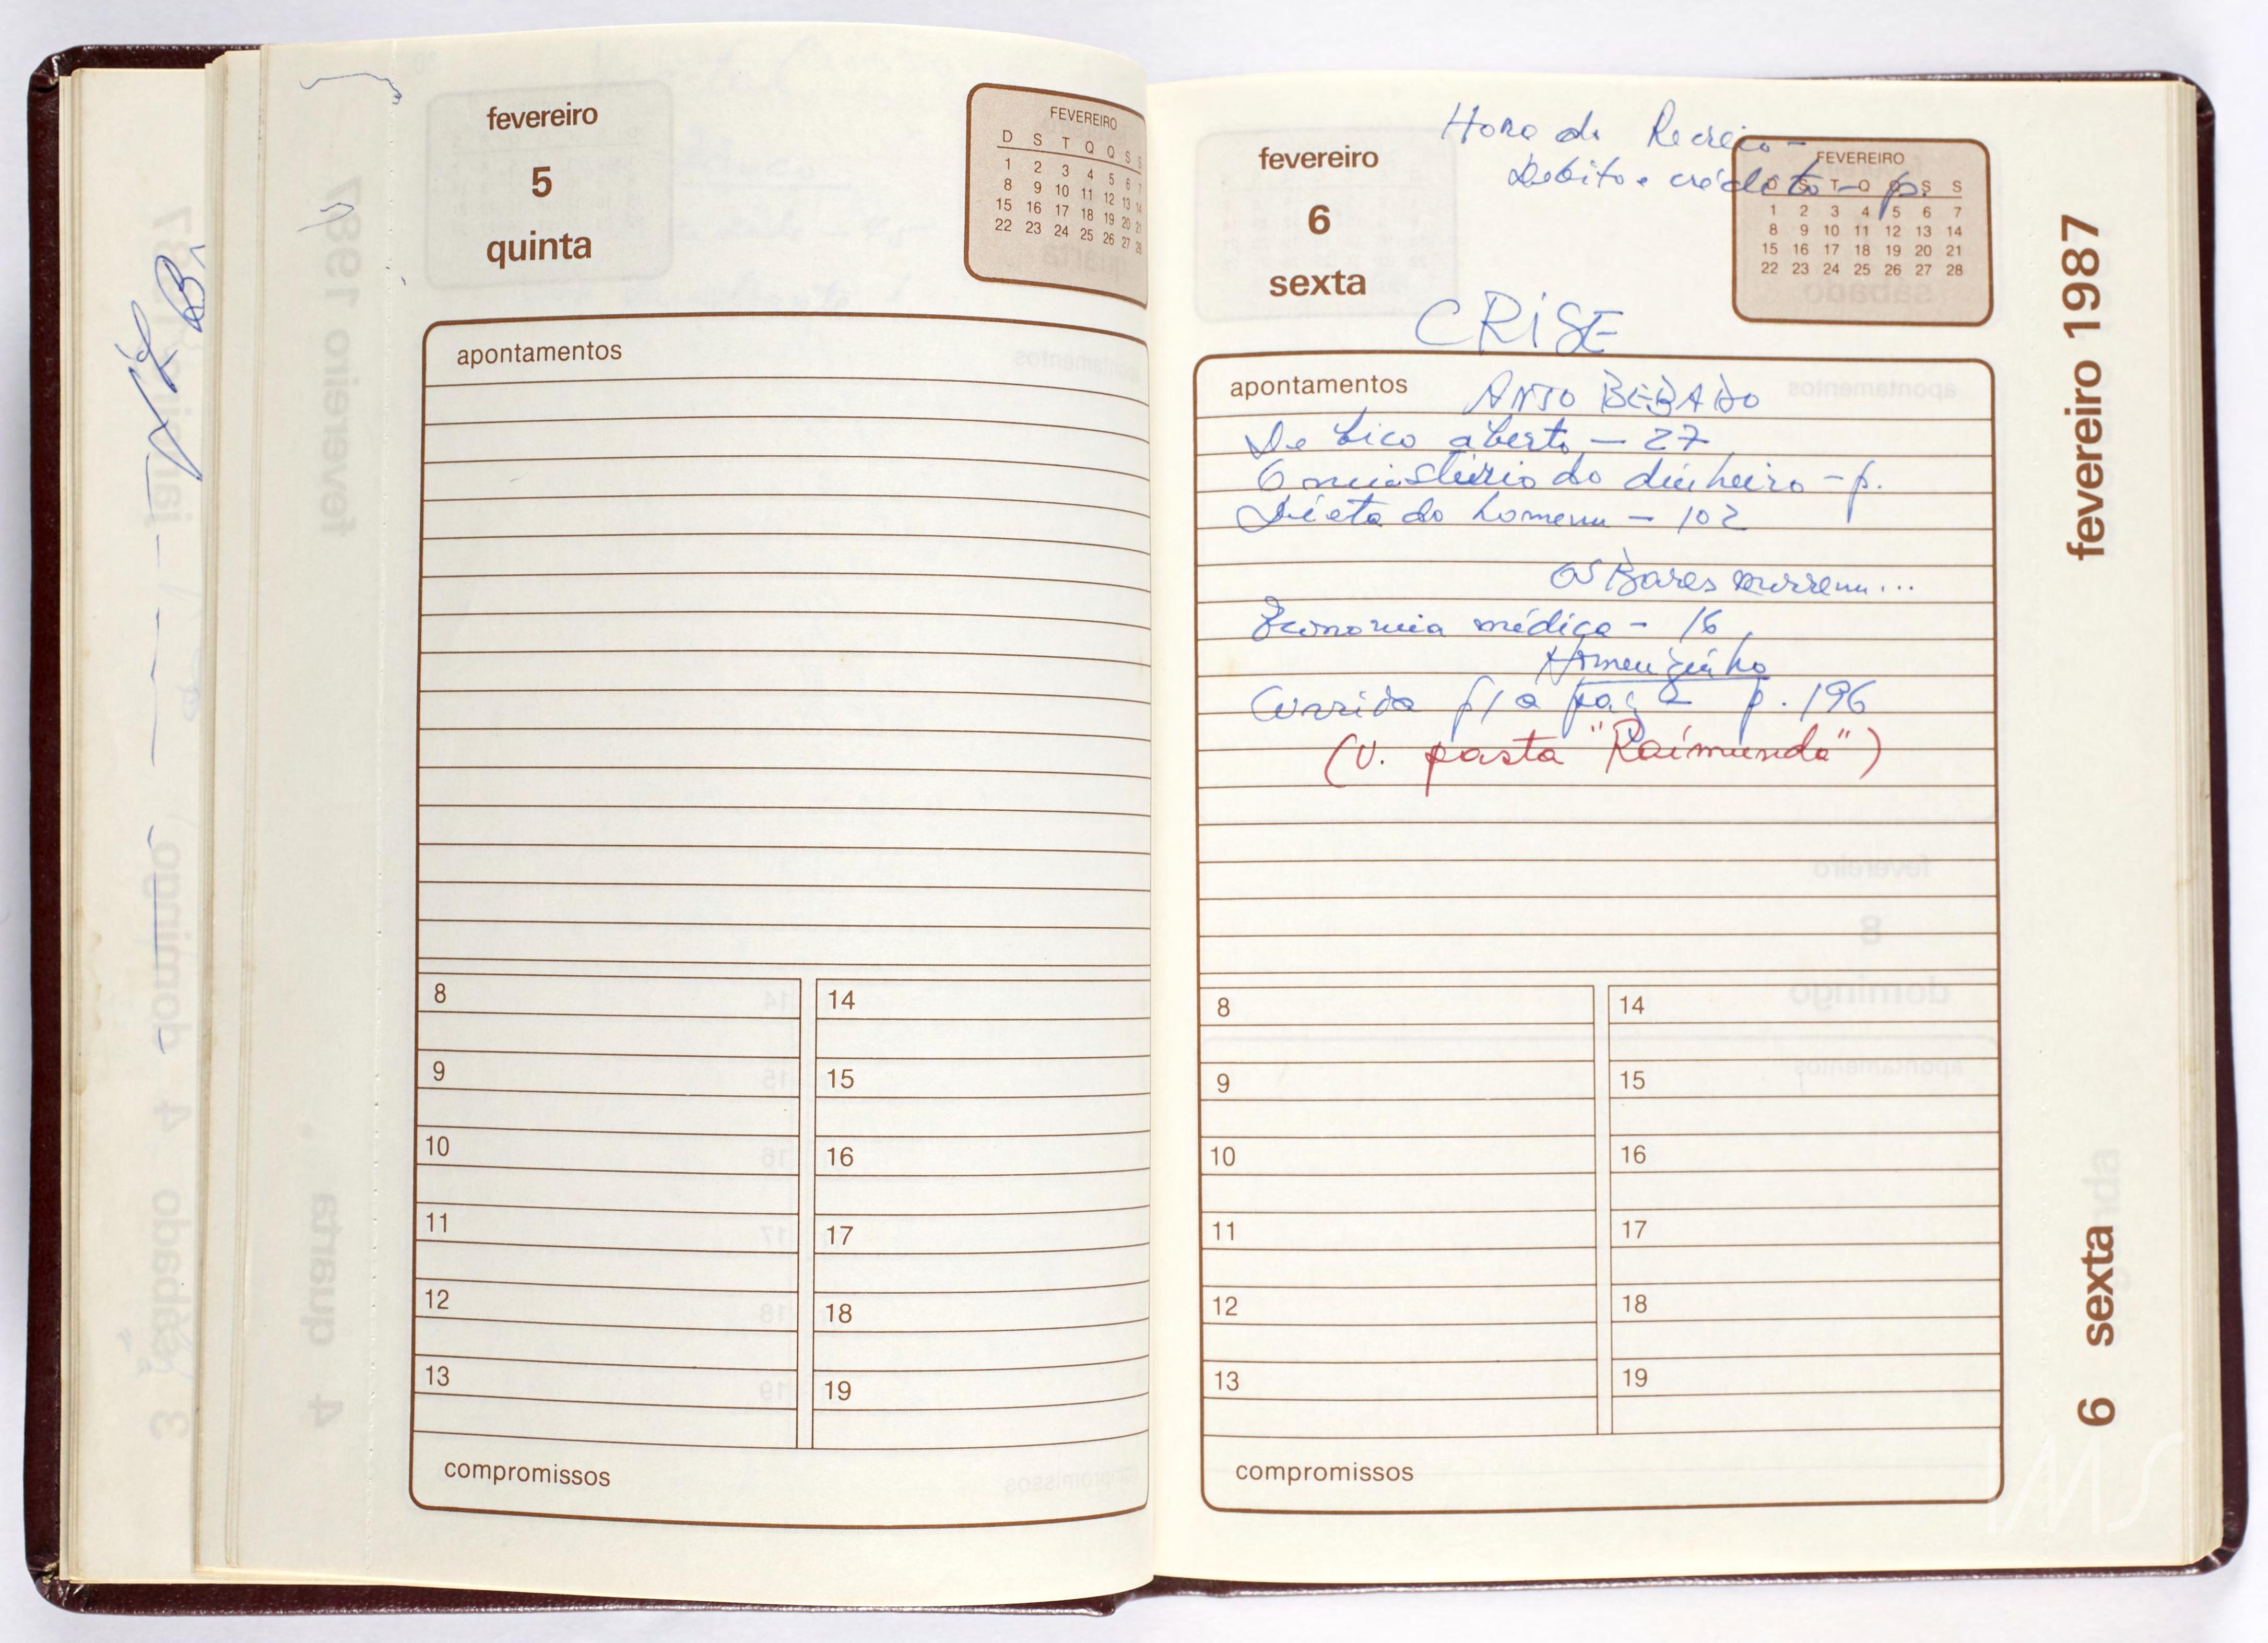 fevereiro
5
quinta
FEVEREIRO
D S T Q Q S S
1 2 3 4 5 6 7
8 9 10 11 12 13 14
15 16 17 18 19 20 21
22 23 24 25 26 27 28
apontamentos
8 14
9 15
10 16
11 17
12 18
13 19
compromissos
Hora do Recreio -
Debito e crédito - p.
fevereiro
6
sexta
FEVEREIRO
D S T Q Q S S
1 2 3 4 5 6 7
8 9 10 11 12 13 14
15 16 17 18 19 20 21
22 23 24 25 26 27 28
CRISE
apontamentos
ANJO BÊBADO
De bico aberto - 27
O mistério do dinheiro - p.
Dieta do homem - 102
Os Bares morrem...
Economia médica - 16
Homenzinho
Corrida p/ a paz - p. 196
(V. pasta "Raimundo")
8 14
9 15
10 16
11 17
12 18
13 19
compromissos
fevereiro 1987
6 sexta
IMS